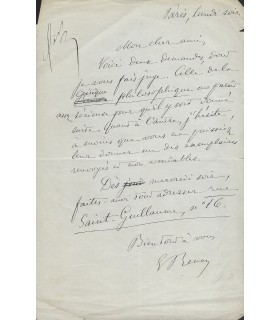 Paris, lundi soir
Mon cher ami,
Voici deux demandes, dont
je vous fais juge. Celle de la
Critique philosophique me paraît
assez sérieuse pour qu'il y soit donné
suite. Quant à l'autre, j'hésite,
à moins que vous ne puissiez
leur donner un des exemplaires
renvoyés et non
Dès mercredi soir,
faites-moi tout adresser rue
Saint-Guillaume, n° 16.
Bientôt à vous
E Renan